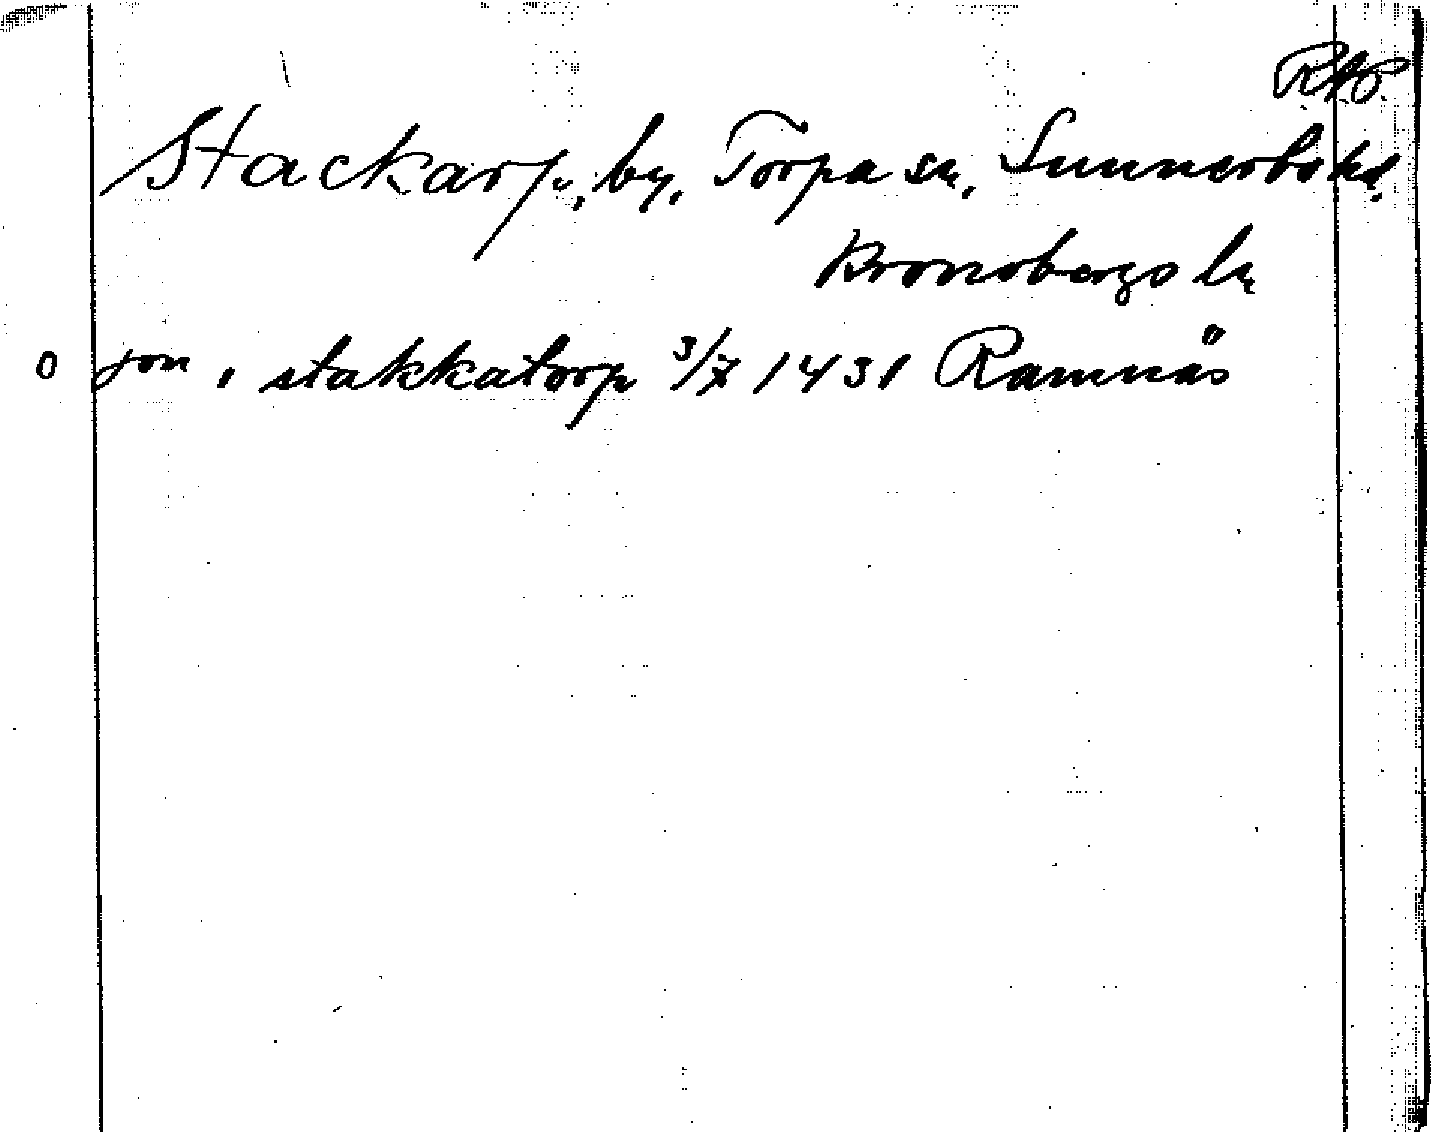 RAP.
Stackarp, by, Torpa sn, Sunnerbo hd.
Kronobergs ln
o jon i stakkatorp 3/7 1431 Ramnäs